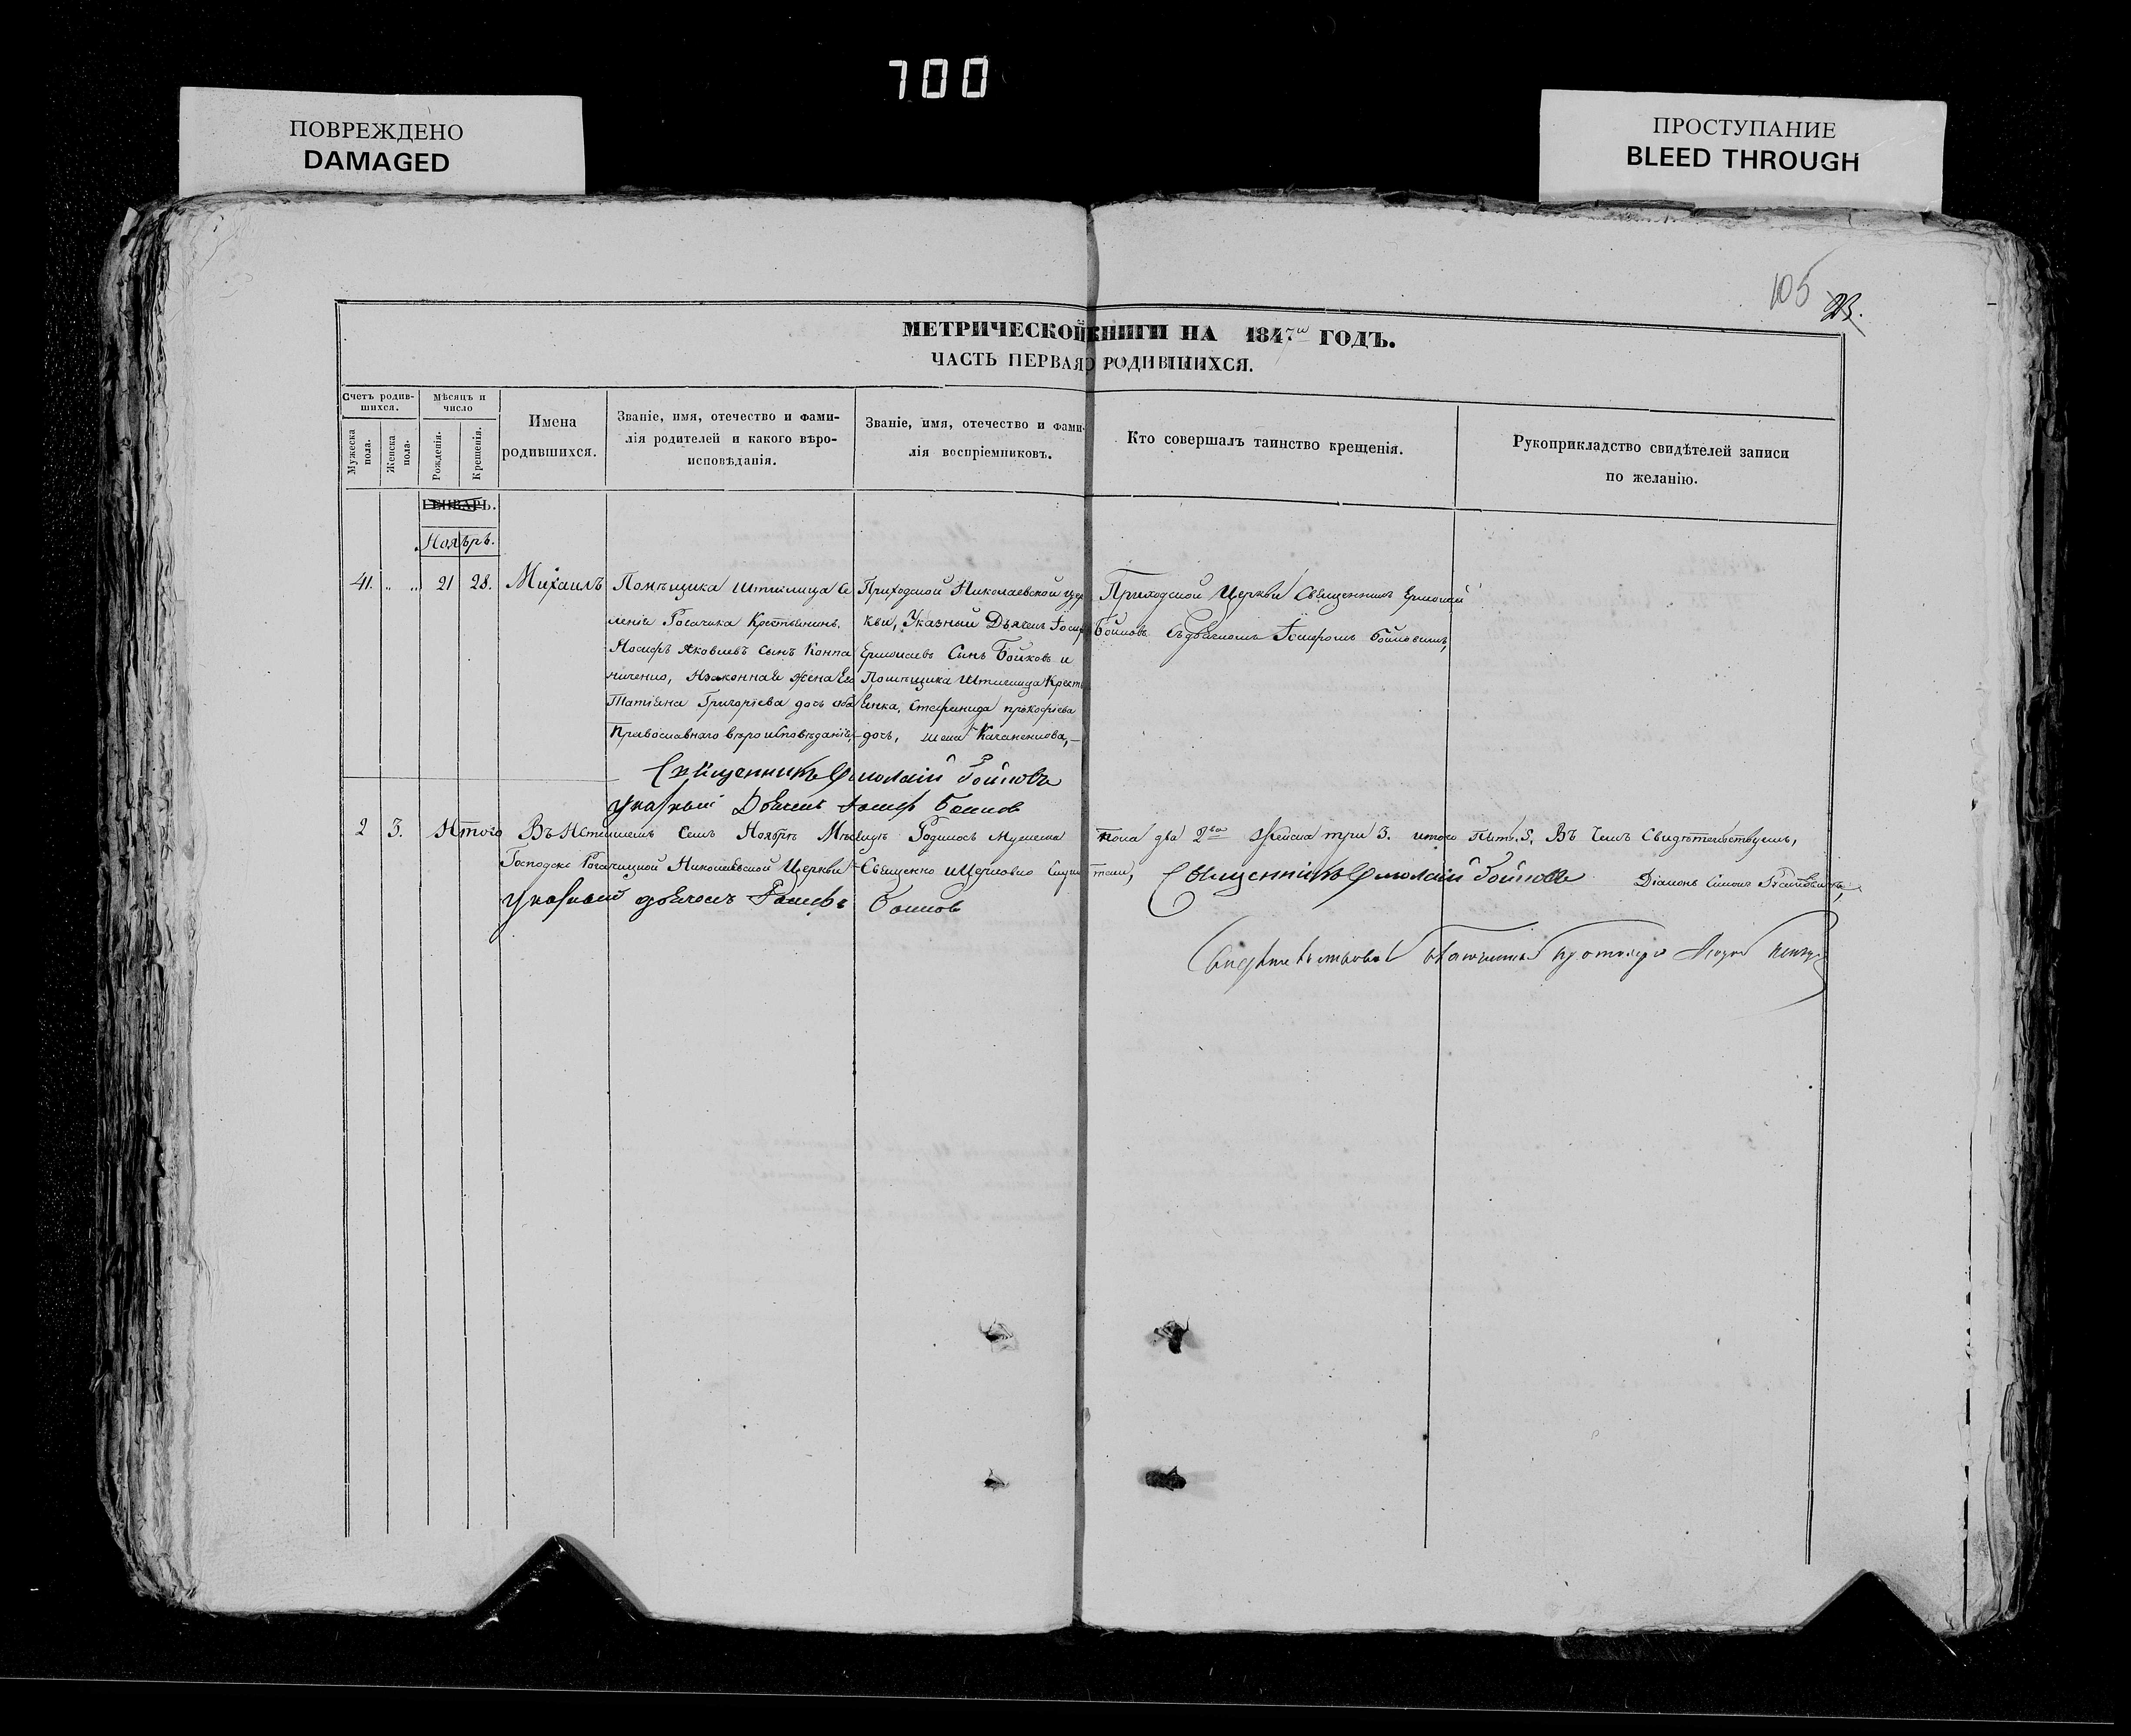 700
ПОВРЕЖДЕНО
DAMAGED
ПРОСТУПАНИЕ
BLEED THROUGH
105
МЕТРИЧЕСКОЙ КНИГИ НА 1847й ГОДЪ.
ЧАСТЬ ПЕРВАЯ О РОДИВШИХСЯ.
Счетъ родив-
шихся.
Мужеска пола.
Женска пола.
Мѣсяцъ и
число
Рожденія.
Крещенія.
Имена
родившихся.
Званіе, имя, отечество и фами-
лія родителей и какого вѣро-
исповѣданія.
Званіе, имя, отечество и фами-
лія воспріемниковъ.
Кто совершалъ таинство крещенія.
Рукоприкладство свидѣтелей записи
по желанію.
ГЕНВАРЬ.
Ноябрь.
41. „ „ 21 28. Михаилъ
Помѣщика Штиглица Се
ленія Рогачика Крестьянинъ
Іосифъ Яковлевъ Сынъ
Изаконная Жена Его
Татіяна Григоріева дочь оба
Православнаго вѣроисповѣданія,
Приходской Николаевской цер
кви, Указный Дьячекъ Іосифъ
Ермолаевъ Сынъ Бойковъ и
Помѣщика Штиглица Крестья
янка, Стефанида прокофіева
дочь,
Приходской Церкви Священникъ Ермолай
Бойковъ съ дьячкомъ Іосифомъ Бойковымъ,
Священникъ Ермолай Бойковъ
указный Дьячекъ Іосиф Бойков
2 3. Итого Въ Истекшемъ Семъ Ноябрѣ Мѣсяцѣ Родилось Мужеска пола два 2ва Женска три 3. итого Пять 5, Въ Чемъ Свидѣтельствуемъ,
Рогачицкой Николаевской Церкви Священно и Церковно Служители, Священникъ Ермолай Бойковъ Діаконъ Симонъ
указный дьячокъ Іосифъ Бойков
Свидѣтельствовал Благочинный протоіерей